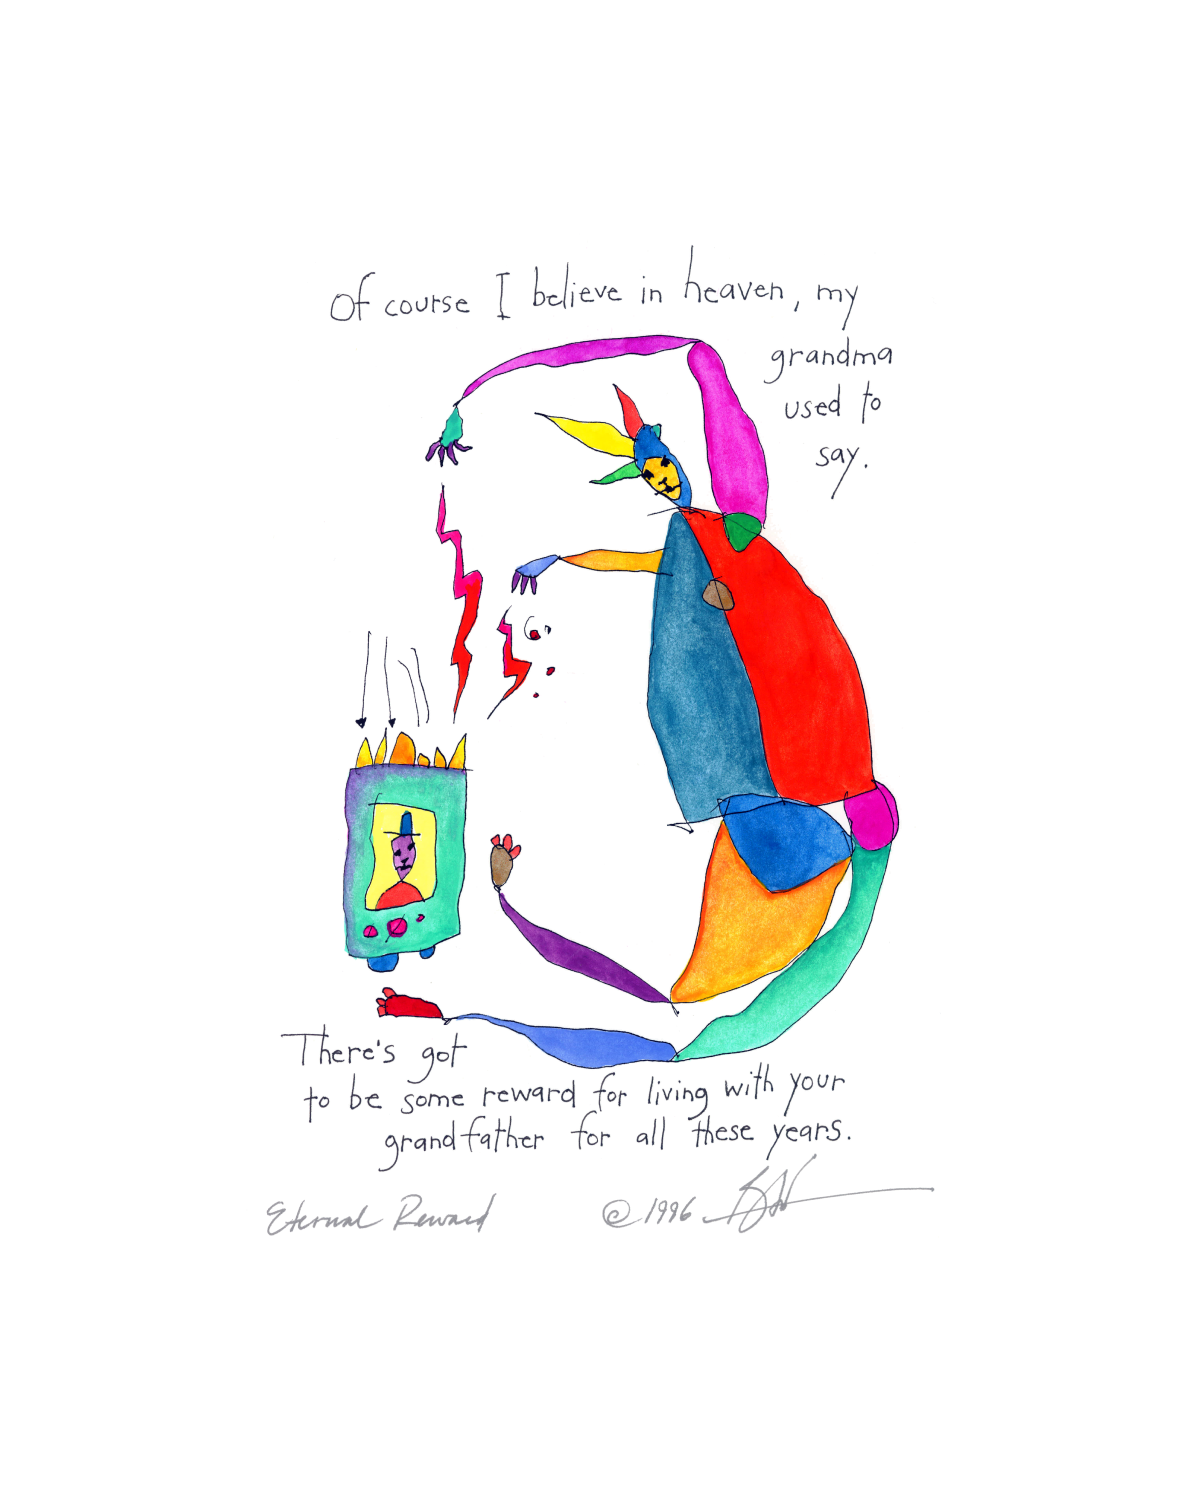 Of course I believe in heaven, my
grandma
used to
say.
There's got
to be some reward for living with your
grandfather for all these years.
Eternal Reward
© 1996